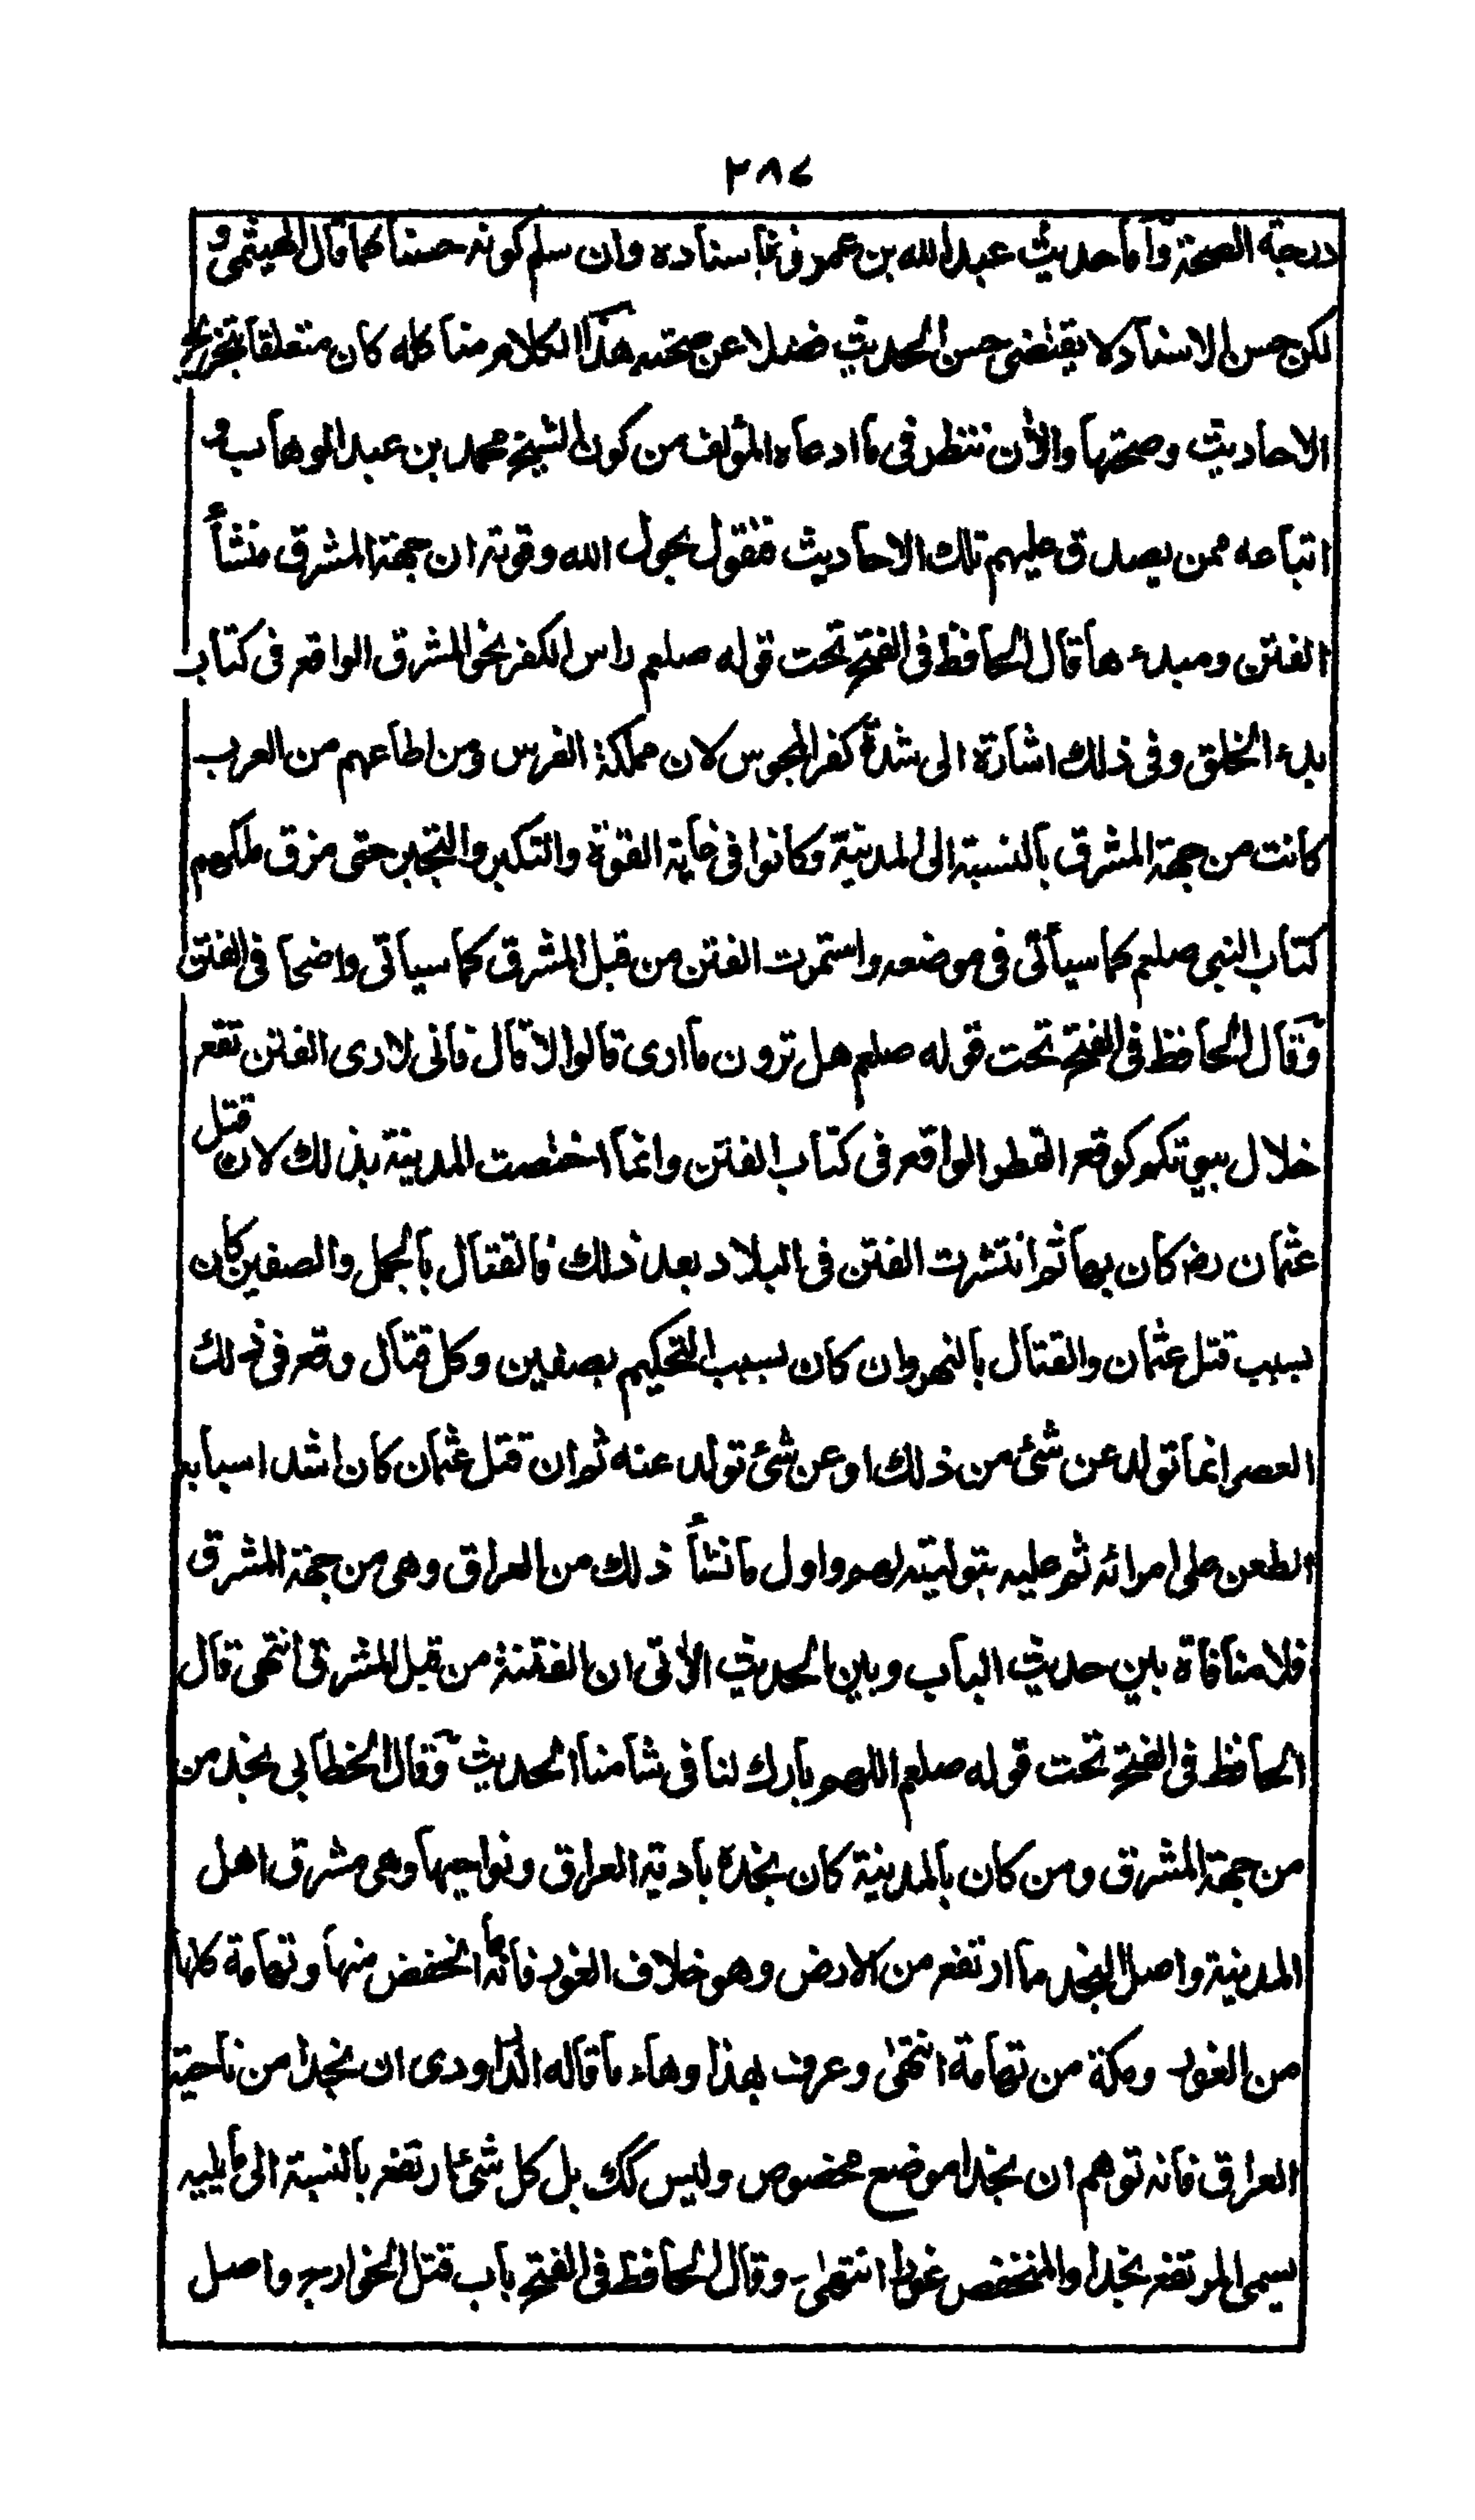 ٢٨٤
درجة الصحة وأما حديث عبد الله بن عمرو فباسناده وان سلم كونه حسنا كما قال الهيثمي و
لكن حسن الاسناد لا يقتضى حسن الحديث فضلا عن صحته هذا الكلام منا كله كان متعلقا بتخريج
الاحاديث وصحتها والآن ننظر فى ما ادعاه المؤلف من كون الشيخ محمد بن عبد الوهاب و
اتباعه ممن يصدق عليهم تلك الاحاديث فنقول بحول الله وقوته ان جهة المشرق منشأ
الفتن ومبدء ها قال الحافظ فى الفتح تحت قوله صلعم راس الكفر نحو المشرق الواقع فى كتاب
بدء الخلق وفى ذلك اشارة الى شدة كفر المجوس لان مملكة الفرس ومن اطاعهم من العرب
كانت من جهة المشرق بالنسبة الى المدينة وكانوا فى غاية القوة والتكبر والتجبر حتى مزق ملكهم
كتاب النبى صلعم كما سيأتى فى موضعه واستمرت الفتن من قبل المشرق كما سياتى واضحا فى الفتن
وقال الحافظ فى الفتح تحت قوله صلعم هل ترون ما ارى قالوا لا قال فانى لارى الفتن تقع
خلال بيوتكم كوقع القطر الواقع فى كتاب الفتن وانما اختصت المدينة بذلك لان قتل
عثمان رض كان بها ثم انتشرت الفتن فى البلاد بعد ذلك فالقتال بالجمل والصفين كان
بسبب قتل عثمان والقتال بالنهروان كان بسبب التحكيم بصفين وكل قتال وقع فى ذلك
العصر انما تولد عن شئ من ذلك او عن شئ تولد عنه ثم ان قتل عثمان كان اشد اسبابه
الطعن على امرائه ثم عليه بتوليته لهم واول ما نشأ ذلك من العراق وهى من جهة المشرق
فلا منافاة بين حديث الباب وبين الحديث الآتى ان الفتنة من قبل المشرق انتهى قال
الحافظ فى الفتح تحت قوله صلعم اللهم بارك لنا فى شامنا الحديث وقال الخطابى نجد من
من جهة المشرق ومن كان بالمدينة كان نجده بادية العراق ونواحيها وهى مشرق اهل
المدينة واصل النجد ما ارتفع من الارض وهو خلاف الغور فانه ما انخفض منها وتهامة كلها
من الغور ومكة من تهامة انتهى وعرف بهذا وهاء ما قاله الداودى ان نجدا من ناحية
العراق فانه توهم ان نجدا موضع مخصوص وليس كك بل كل شئ ارتفع بالنسبة الى ما يليه
يسمى المرتفع نجدا والمنخفض غورا انتهى وقال الحافظ فى الفتح باب قتل الخوارج واصل